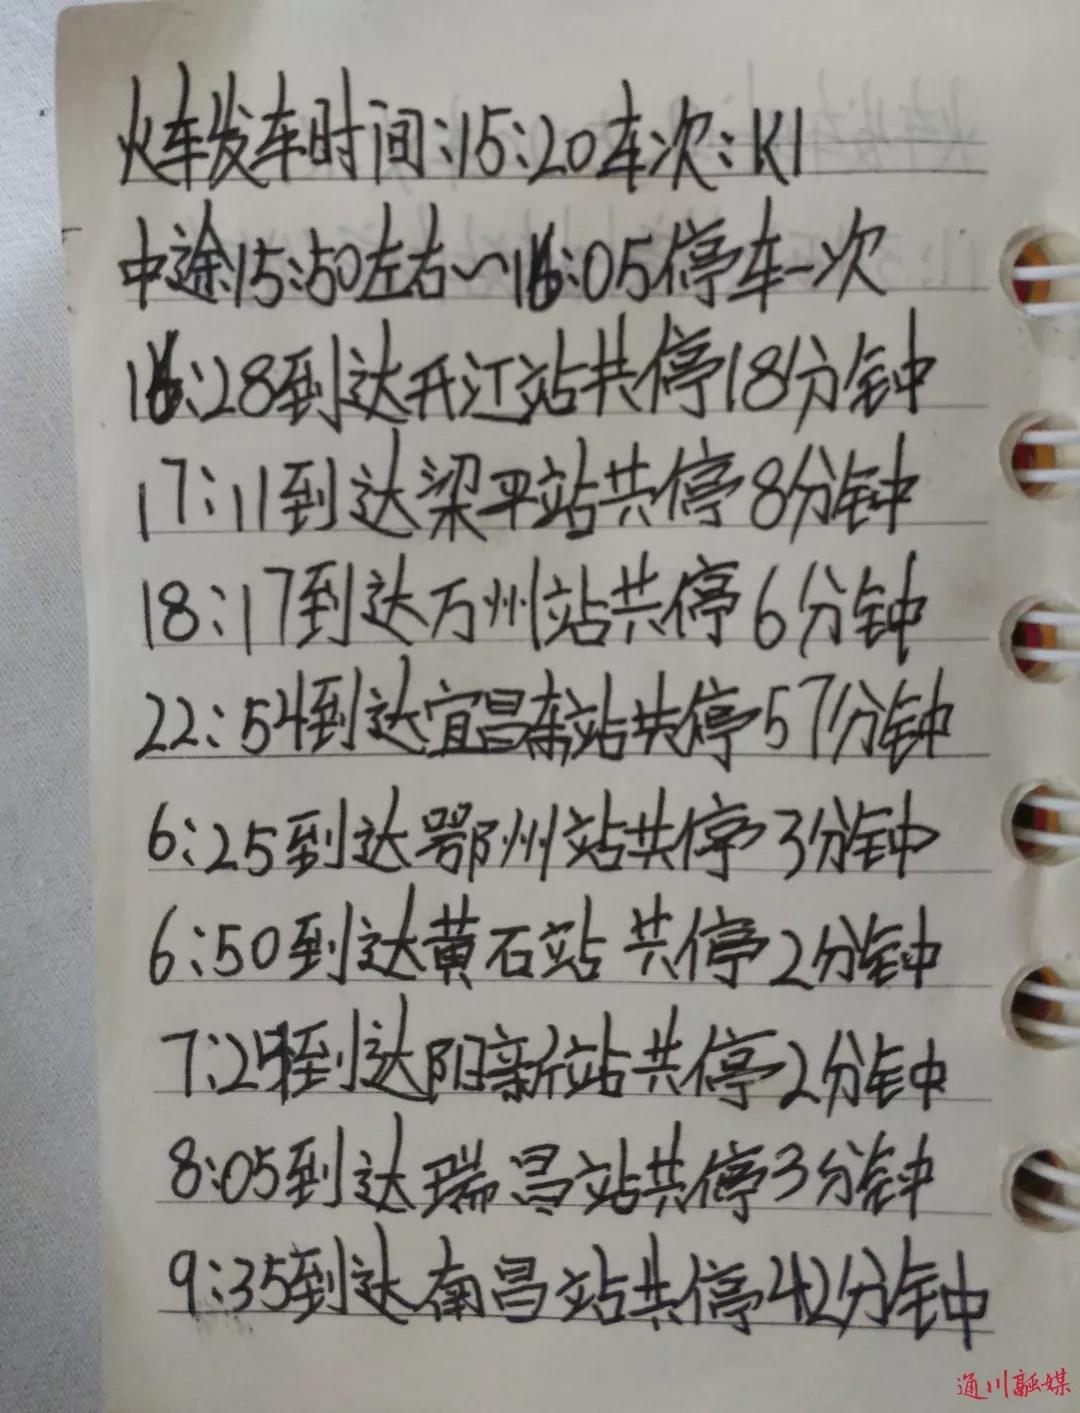 火车发车时间:15:20车次:K1
中途15:50左右~16:05停车一次
16:28到达开江站共停18分钟
17:11到达梁平站共停8分钟
18:17到达万州站共停6分钟
22:54到达宜昌东站共停57分钟
6:25到达鄂州站共停3分钟
6:50到达黄石站共停2分钟
到达阳新站共停2分钟
8:05到达瑞昌站共停3分钟
9:35到达南昌站共停42分钟
通川融媒